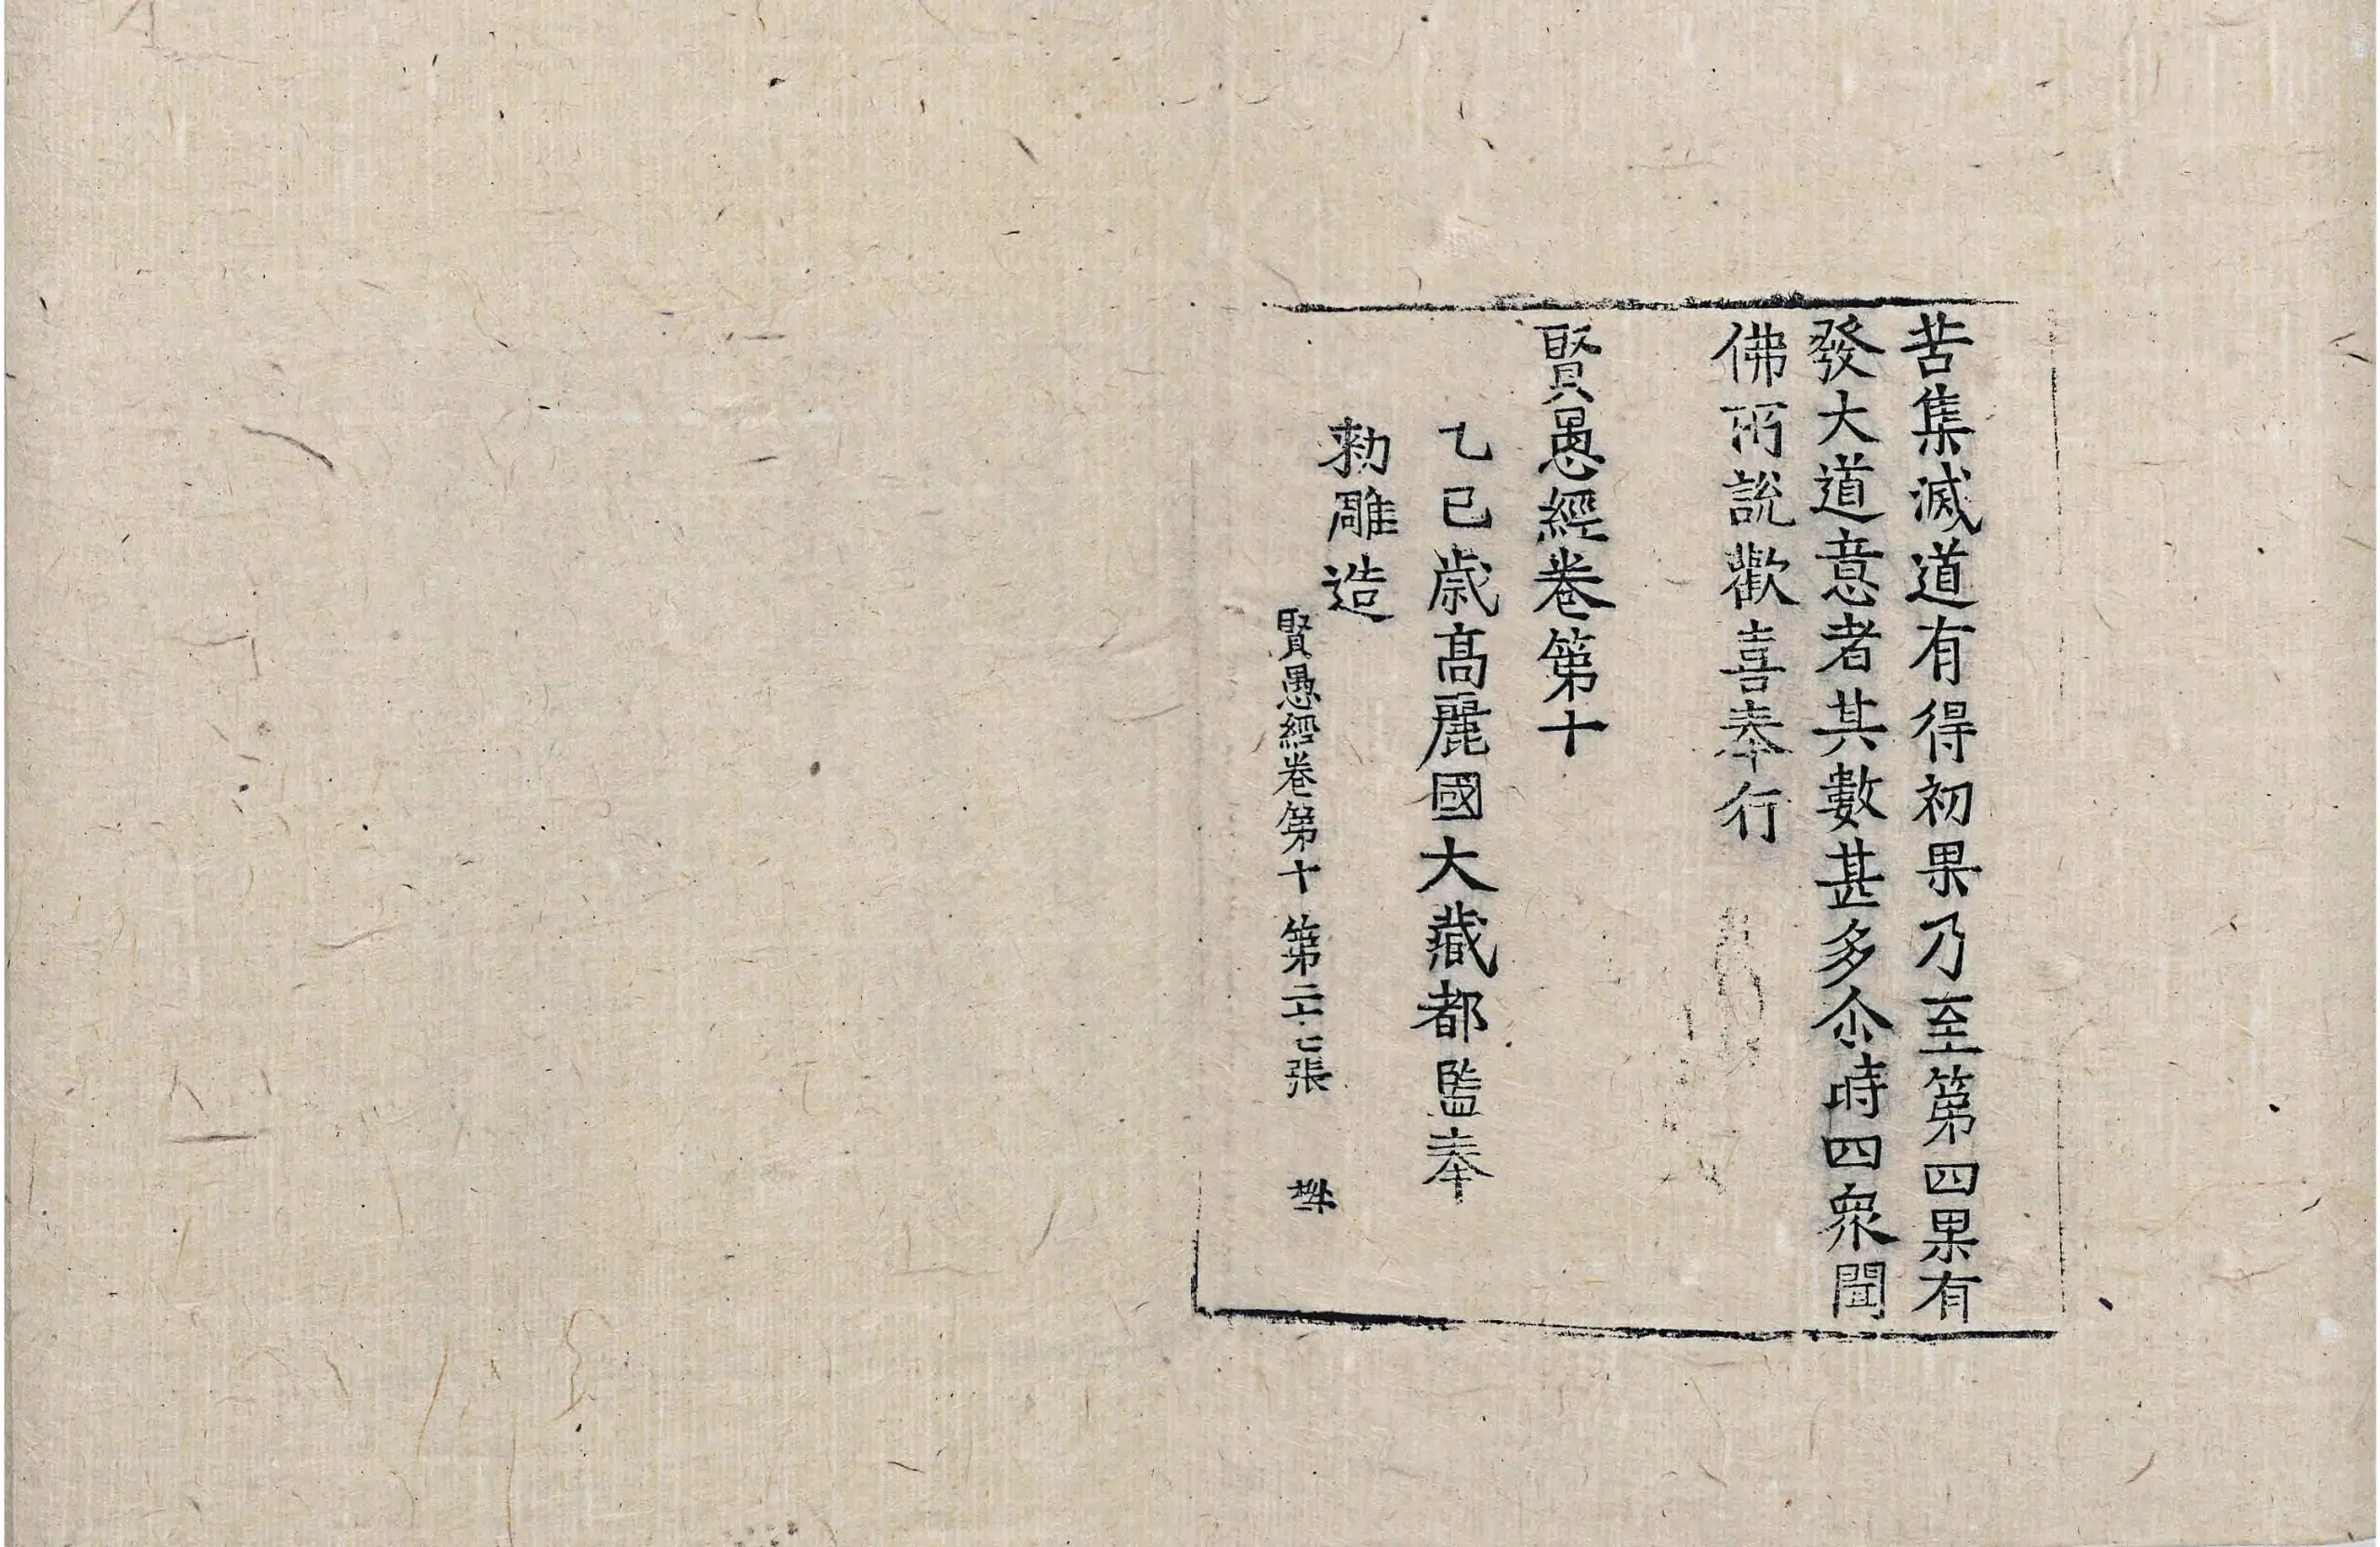 苦集滅道有得初果乃至第四果有
發大道意者其數甚多尒時四衆聞
佛所說歡喜奉行
賢愚經卷第十
乙巳歲高麗國大藏都監奉
勅雕造
賢愚經卷第十 第二十七張